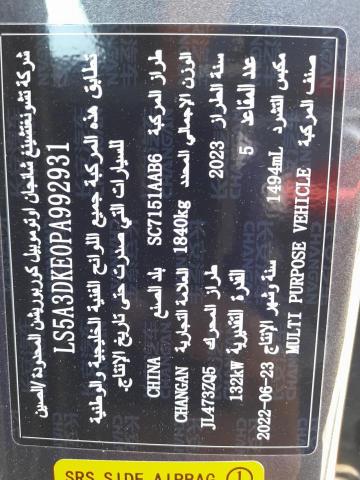 شركة تشونغتشينغ شانجان اوتوموبيل كوربوريشن المحدودة/الصين
LS5A3DKE0PA992931
تطابق هذه المركبة جميع اللوائح الفنية الخليجية والوطنية
للسيارات التي صدرت حتى تاريخ الإنتاج.
طراز المركبة SC7151AAB6 بلد الصنع CHINA
الوزن الإجمالي المحدد 1840kg العلامة التجارية CHANGAN
سنة الطراز 2023 طراز المحرك JL473ZQ5
عدد المقاعد 5 القدرة التقديرية 132kW
مكبس التشرد 1494mL سنة وشهر الإنتاج 2022-06-23
صنف المركبة MULTI PURPOSE VEHICLE
SRS SIDE AIRBAG